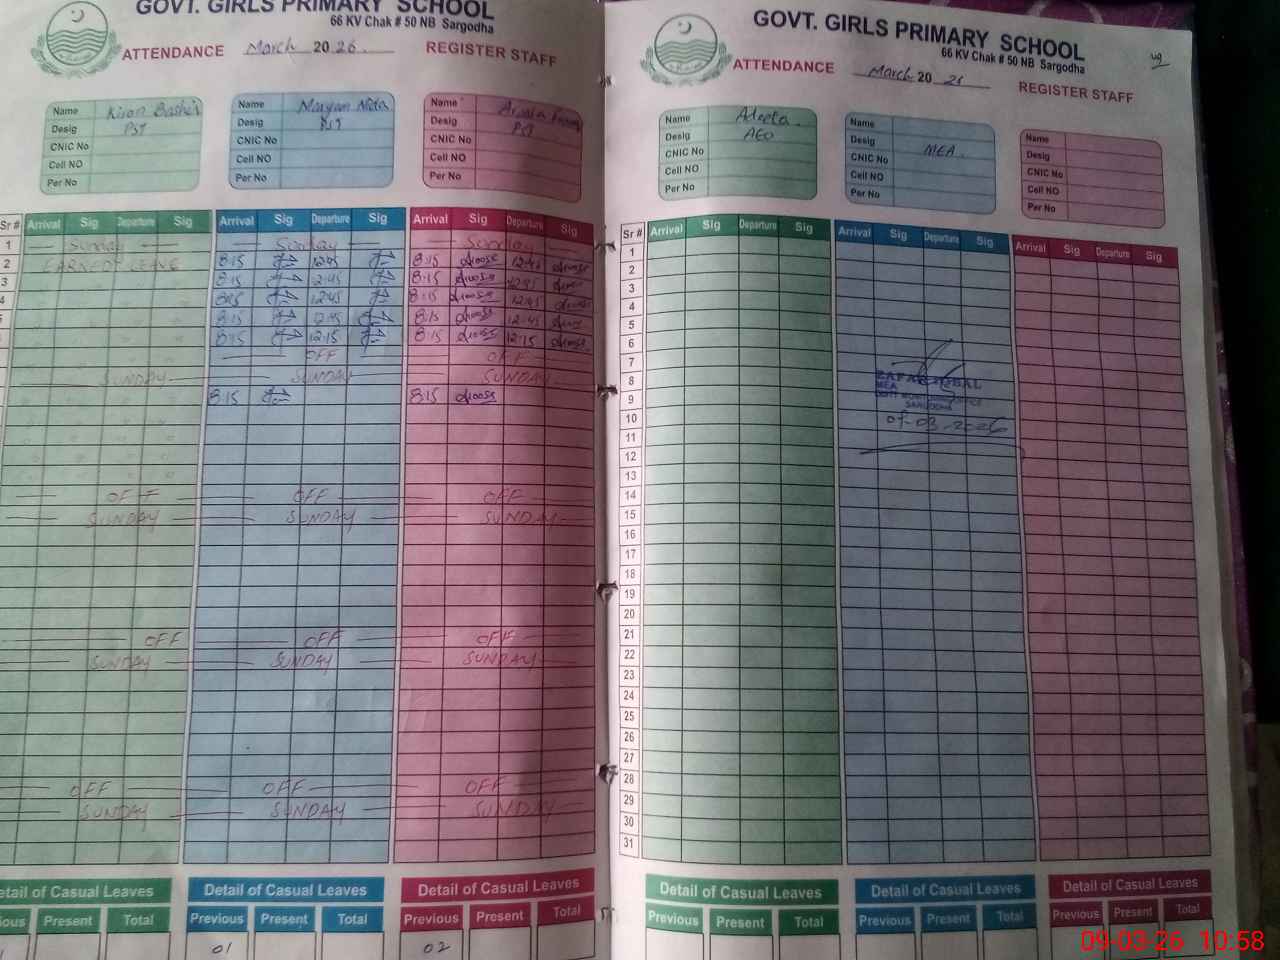 GOVT. GIRLS PRIMARY SCHOOL
66 KV Chak # 50 NB Sargodha
ATTENDANCE March 2026 REGISTER STAFF
Name Kiran Bashir
Desig PST
CNIC No
Cell NO
Per No
Name Maryam Nida
Desig PST
CNIC No
Cell NO
Per No
Name
Desig PST
CNIC No
Cell NO
Per No
Sr # Arrival Sig Departure Sig Arrival Sig Departure Sig Arrival Sig Departure Sig
1 Sunday Sunday Sunday
2 EARNED LEAVE 8:15 12:45 8:15 12:45
3 8:15 12:45 8:15 12:45
4 8:15 12:45 8:15 12:45
8:15 12:45 8:15 12:45
8:15 12:15 8:15 12:15
OFF OFF
SUNDAY SUNDAY SUNDAY
8:15 8:15
OFF OFF OFF
SUNDAY SUNDAY SUNDAY
OFF OFF OFF
SUNDAY SUNDAY SUNDAY
OFF OFF OFF
SUNDAY SUNDAY SUNDAY
Detail of Casual Leaves Detail of Casual Leaves Detail of Casual Leaves
Present Total Previous Present Total Previous Present Total
01 02
GOVT. GIRLS PRIMARY SCHOOL
66 KV Chak # 50 NB Sargodha
ATTENDANCE March 20 REGISTER STAFF
Name
Desig AEO
CNIC No
Cell NO
Per No
Name
Desig MEA.
CNIC No
Cell NO
Per No
Name
Desig
CNIC No
Cell NO
Per No
Sr # Arrival Sig Departure Sig Arrival Sig Departure Sig Arrival Sig Departure Sig
1
2
3
4
5
6
7
8
9
10
11
12
13
14
15
16
17
18
19
20
21
22
23
24
25
26
27
28
29
30
31
MEA
SARGODHA
03-2026
Detail of Casual Leaves Detail of Casual Leaves Detail of Casual Leaves
Previous Present Total Previous Present Total Previous Present Total
09-03-26 10:58